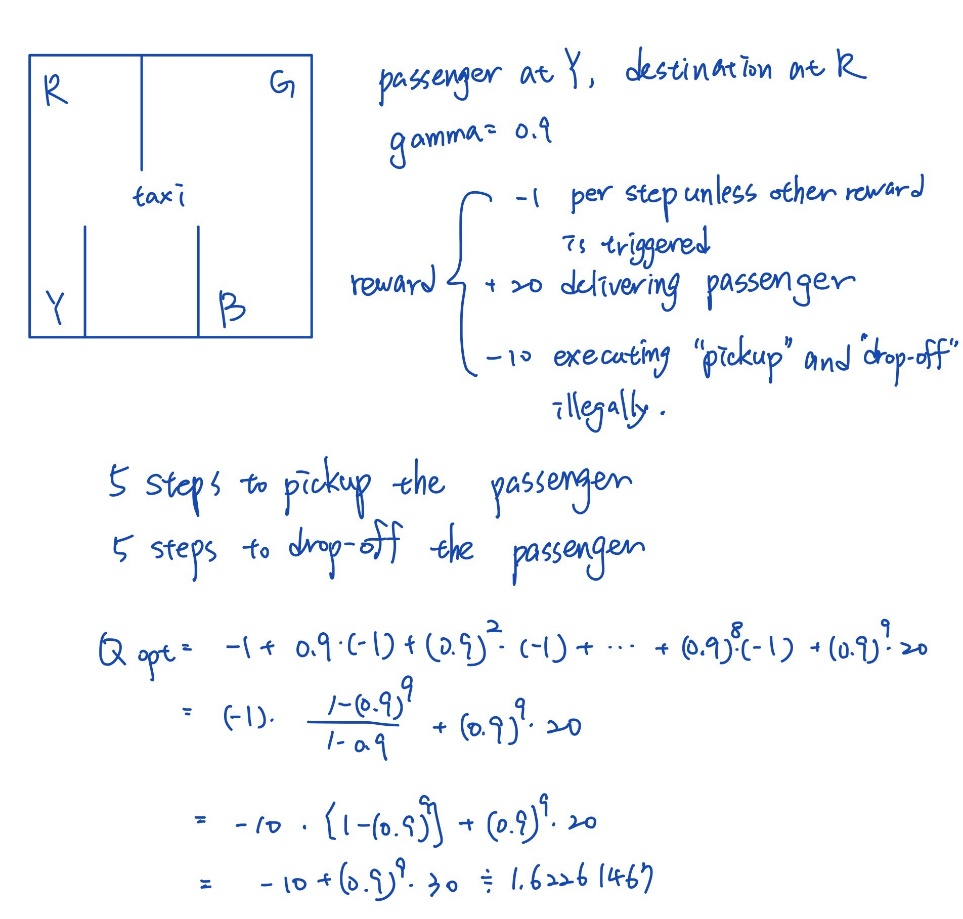 R G
taxi
Y B
passenger at Y, destination at R
gamma = 0.9
reward { -1 per step unless other reward
is triggered
+20 delivering passenger
-10 executing "pickup" and "drop-off"
illegally.
5 steps to pickup the passenger
5 steps to drop-off the passenger
Q opt = -1 + 0.9·(-1) + (0.9)²·(-1) + ··· + (0.9)⁸·(-1) + (0.9)⁹·20
= (-1)· \frac{1-(0.9)⁹}{1-0.9} + (0.9)⁹·20
= -10 · {1-(0.9)⁹} + (0.9)⁹·20
= -10 + (0.9)⁹·30 ≑ 1.62261467